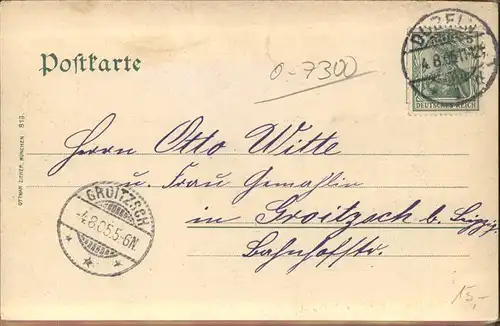 Postkarte
0-7300
DÖBELN
4.8.05
DEUTSCHES REICH
OTTMAR ZIEHER, MÜNCHEN 819.
Herrn Otto Witte
u. Frau Gemahlin
in Groitzsch b. Leipzg.
Bahnhofstr.
GROITZSCH
-4.8.05.5-6N.
15,-